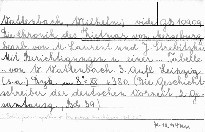 Wattenbach, Wilhelm, vide
Die Chronik des Thietmar von Merseburg
nach M. Laurent und J. Strebitzki
mit Berichtigungen u. einer Tabelle
von W. Wattenbach. 3. Aufl. Leipzig
(s.a.) 8° 380. (Die Geschicht-
schreiber der deutschen Vorzeit. 2. Ge-
samtausg. Bd 39)